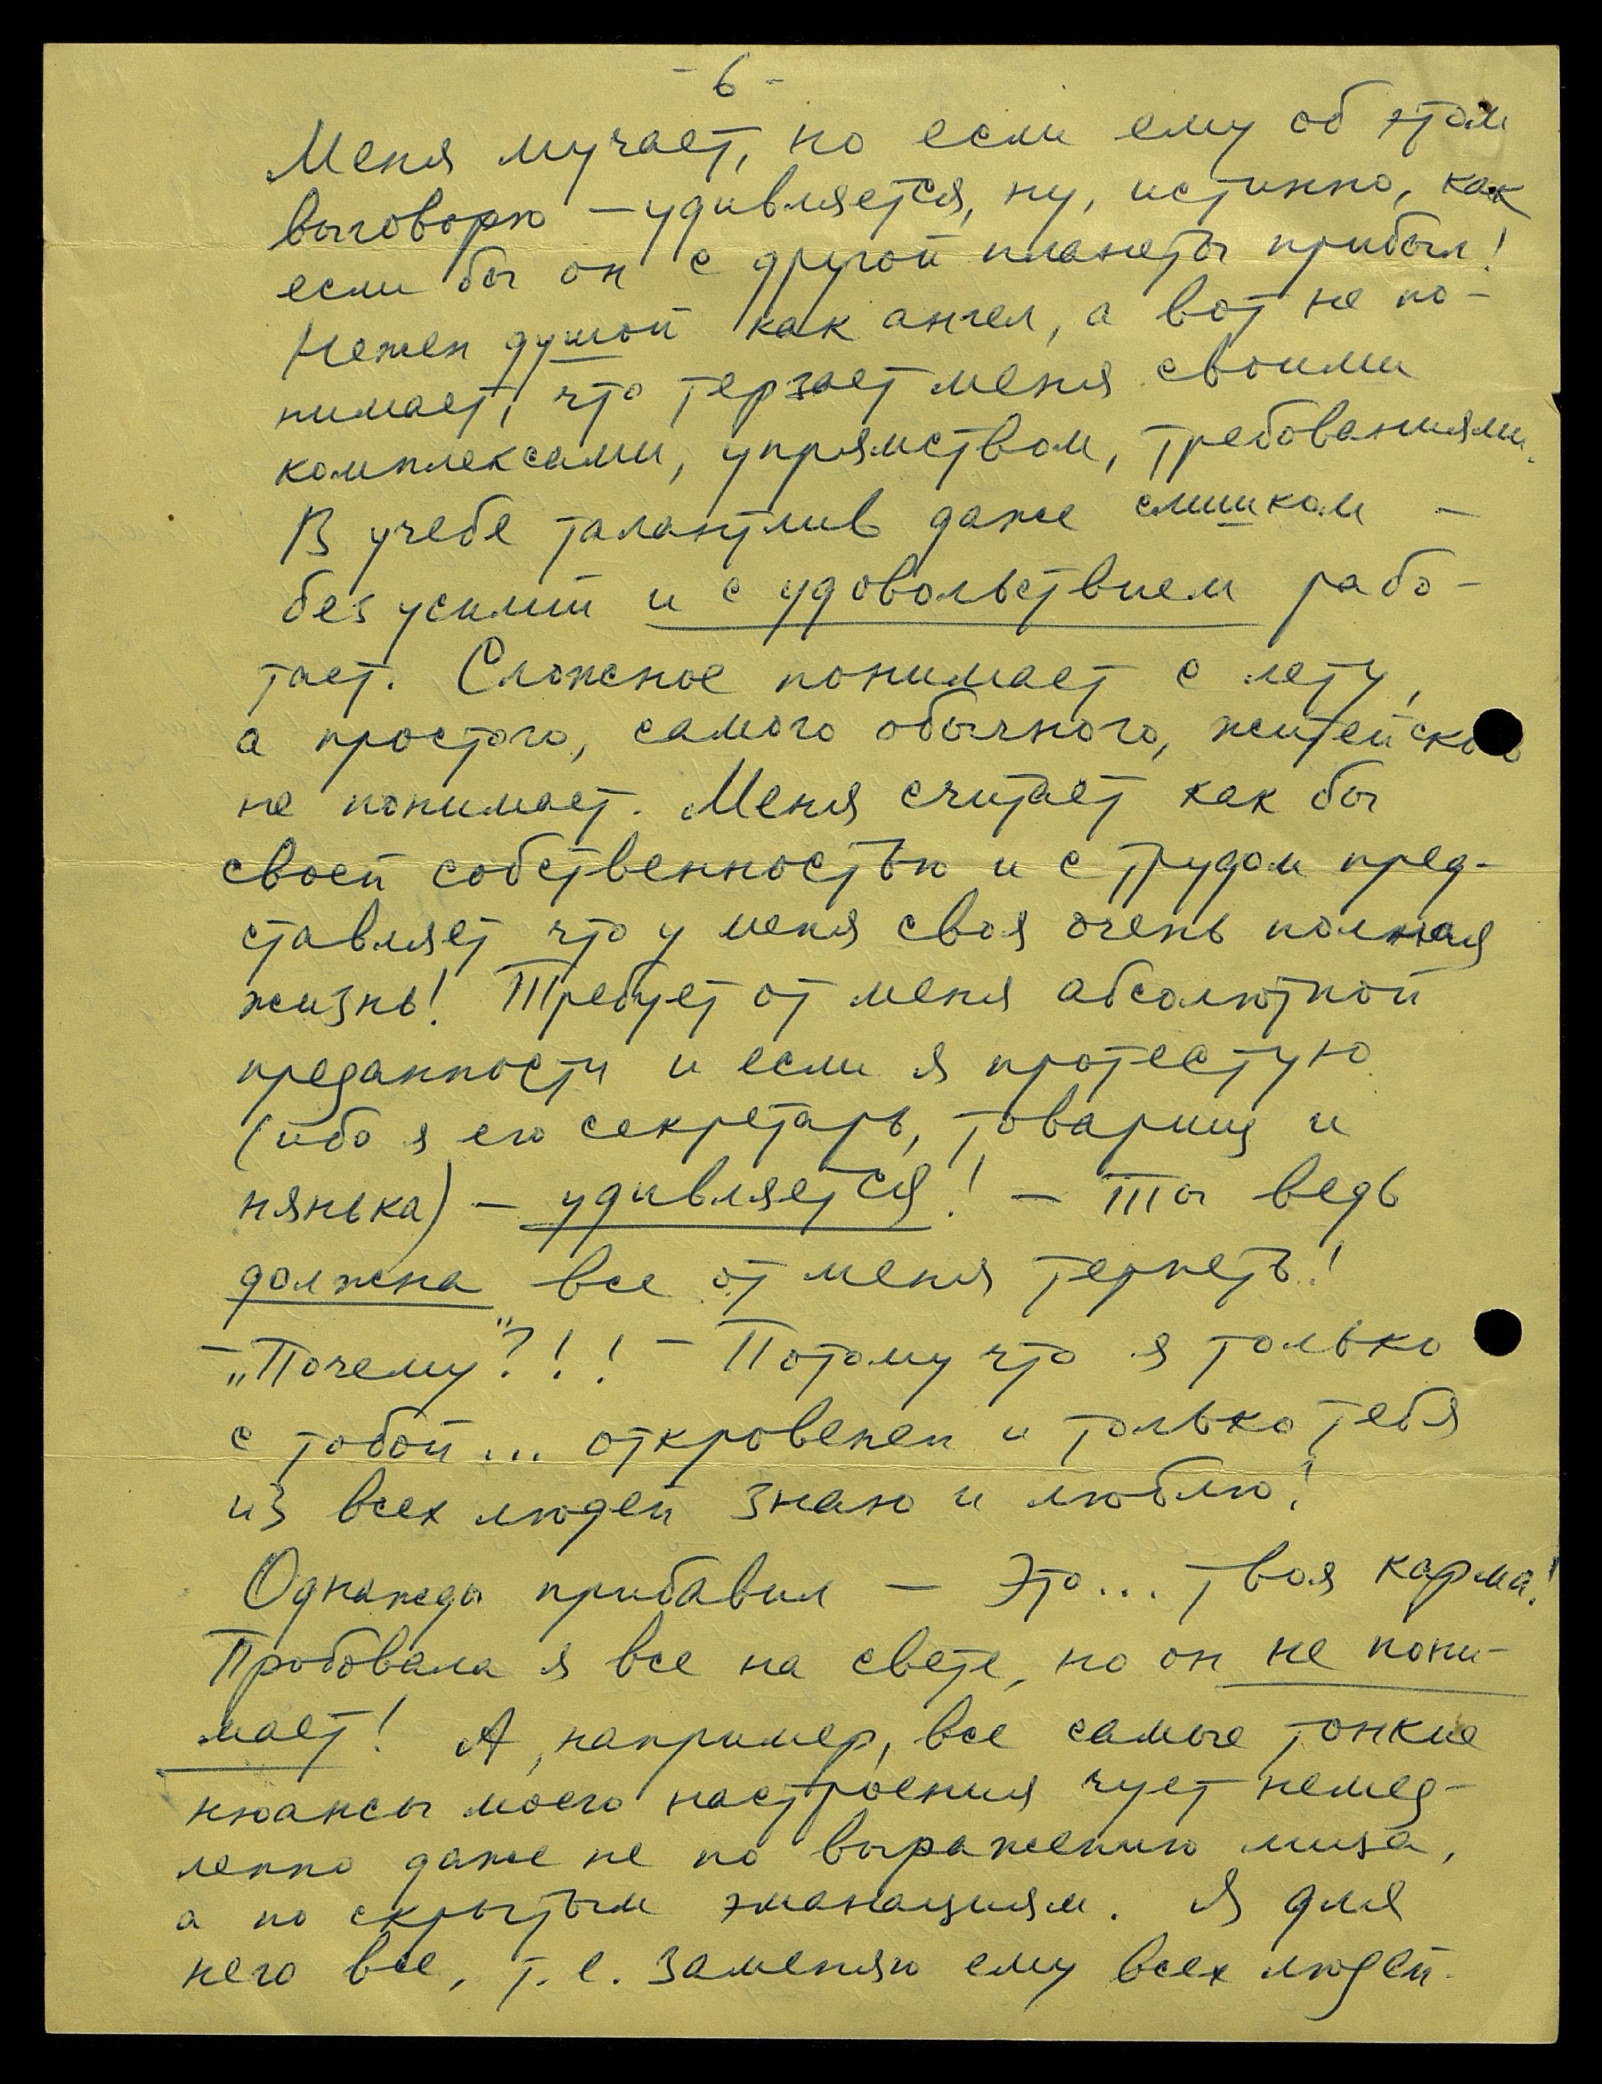 - 6 -
Меня мучает, но если ему об этом
выговорю — удивляется, ну, истинно, как
если бы он с другой планеты прибыл!
Нежен душой как ангел, а вот не по-
нимает, что терзает меня своими
комплексами, упрямством, требованиями.
В учебе талантлив даже слишком —
без усилий и с удовольствием рабо-
тает. Сложное понимает с лету,
а простого, самого обычного, житейского
не понимает. Меня считает как бы
своей собственностью и с трудом пред-
ставляет что у меня своя очень полная
жизнь! Требует от меня абсолютной
преданности и если я протестую
(ибо я его секретарь, товарищ и
нянька) — удивляется! — Ты ведь
должна все от меня терпеть!
— „Почему"?!! — Потому что я только
с тобой... откровенен и только тебя
из всех людей знаю и люблю!
Однажды прибавил — Это... твоя карма!
Пробовала я все на свете, но он не пони-
мает! А, например, все самые тонкие
нюансы моего настроения чует немед-
ленно даже не по выражению лица,
а по скрытым эманациям. Я для
него все, т.е. заменяю ему всех людей.